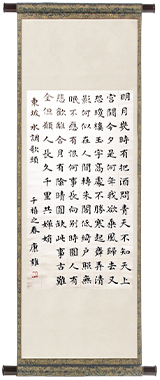 明月幾時有把酒問青天不知天上
宮闕今夕是何年我欲乘風歸去又
恐瓊樓玉宇高處不勝寒起舞弄清
影何似在人間轉朱閣低綺戶照無
眠不應有恨何事長向別時圓人有
悲歡離合月有陰晴圓缺此事古難
全但願人長久千里共嬋娟
東坡 水調歌頭
之春 康雄